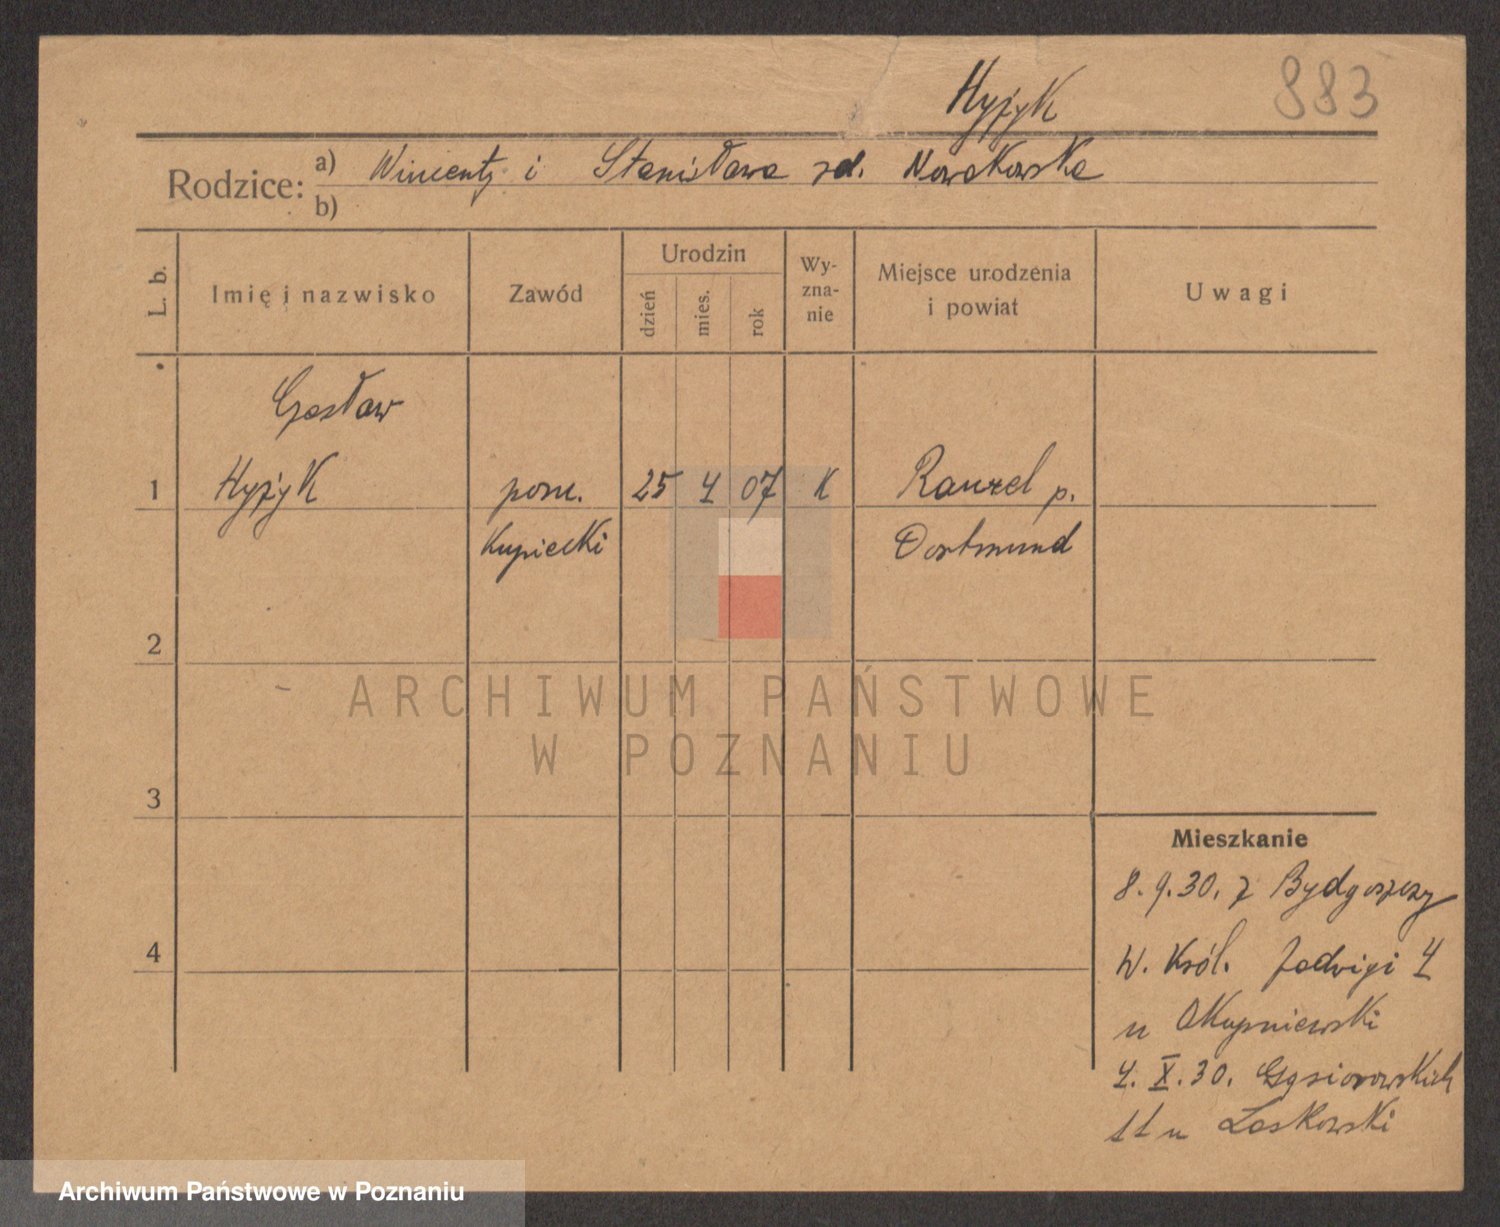 883
Hyżyk
Rodzice: a) Wincenty i Stanisława zd. Nowakowska
b)
L. b.
Imię i nazwisko
Zawód
Urodzin
dzień
mies.
rok
Wy-
zna-
nie
Miejsce urodzenia
i powiat
Uwagi
Czesław
1 Hyżyk pom. 25 4 07 K Rauxel p.
kupiecki Dortmund
2
3
4
ARCHIWUM PAŃSTWOWE
W POZNANIU
Mieszkanie
8.9.30. z Bydgoszczy
W. Król. Jadwigi 4
u Okupniewski
4.X.30. Gąsiorowskich
11 u Laskowski
Archiwum Państwowe w Poznaniu